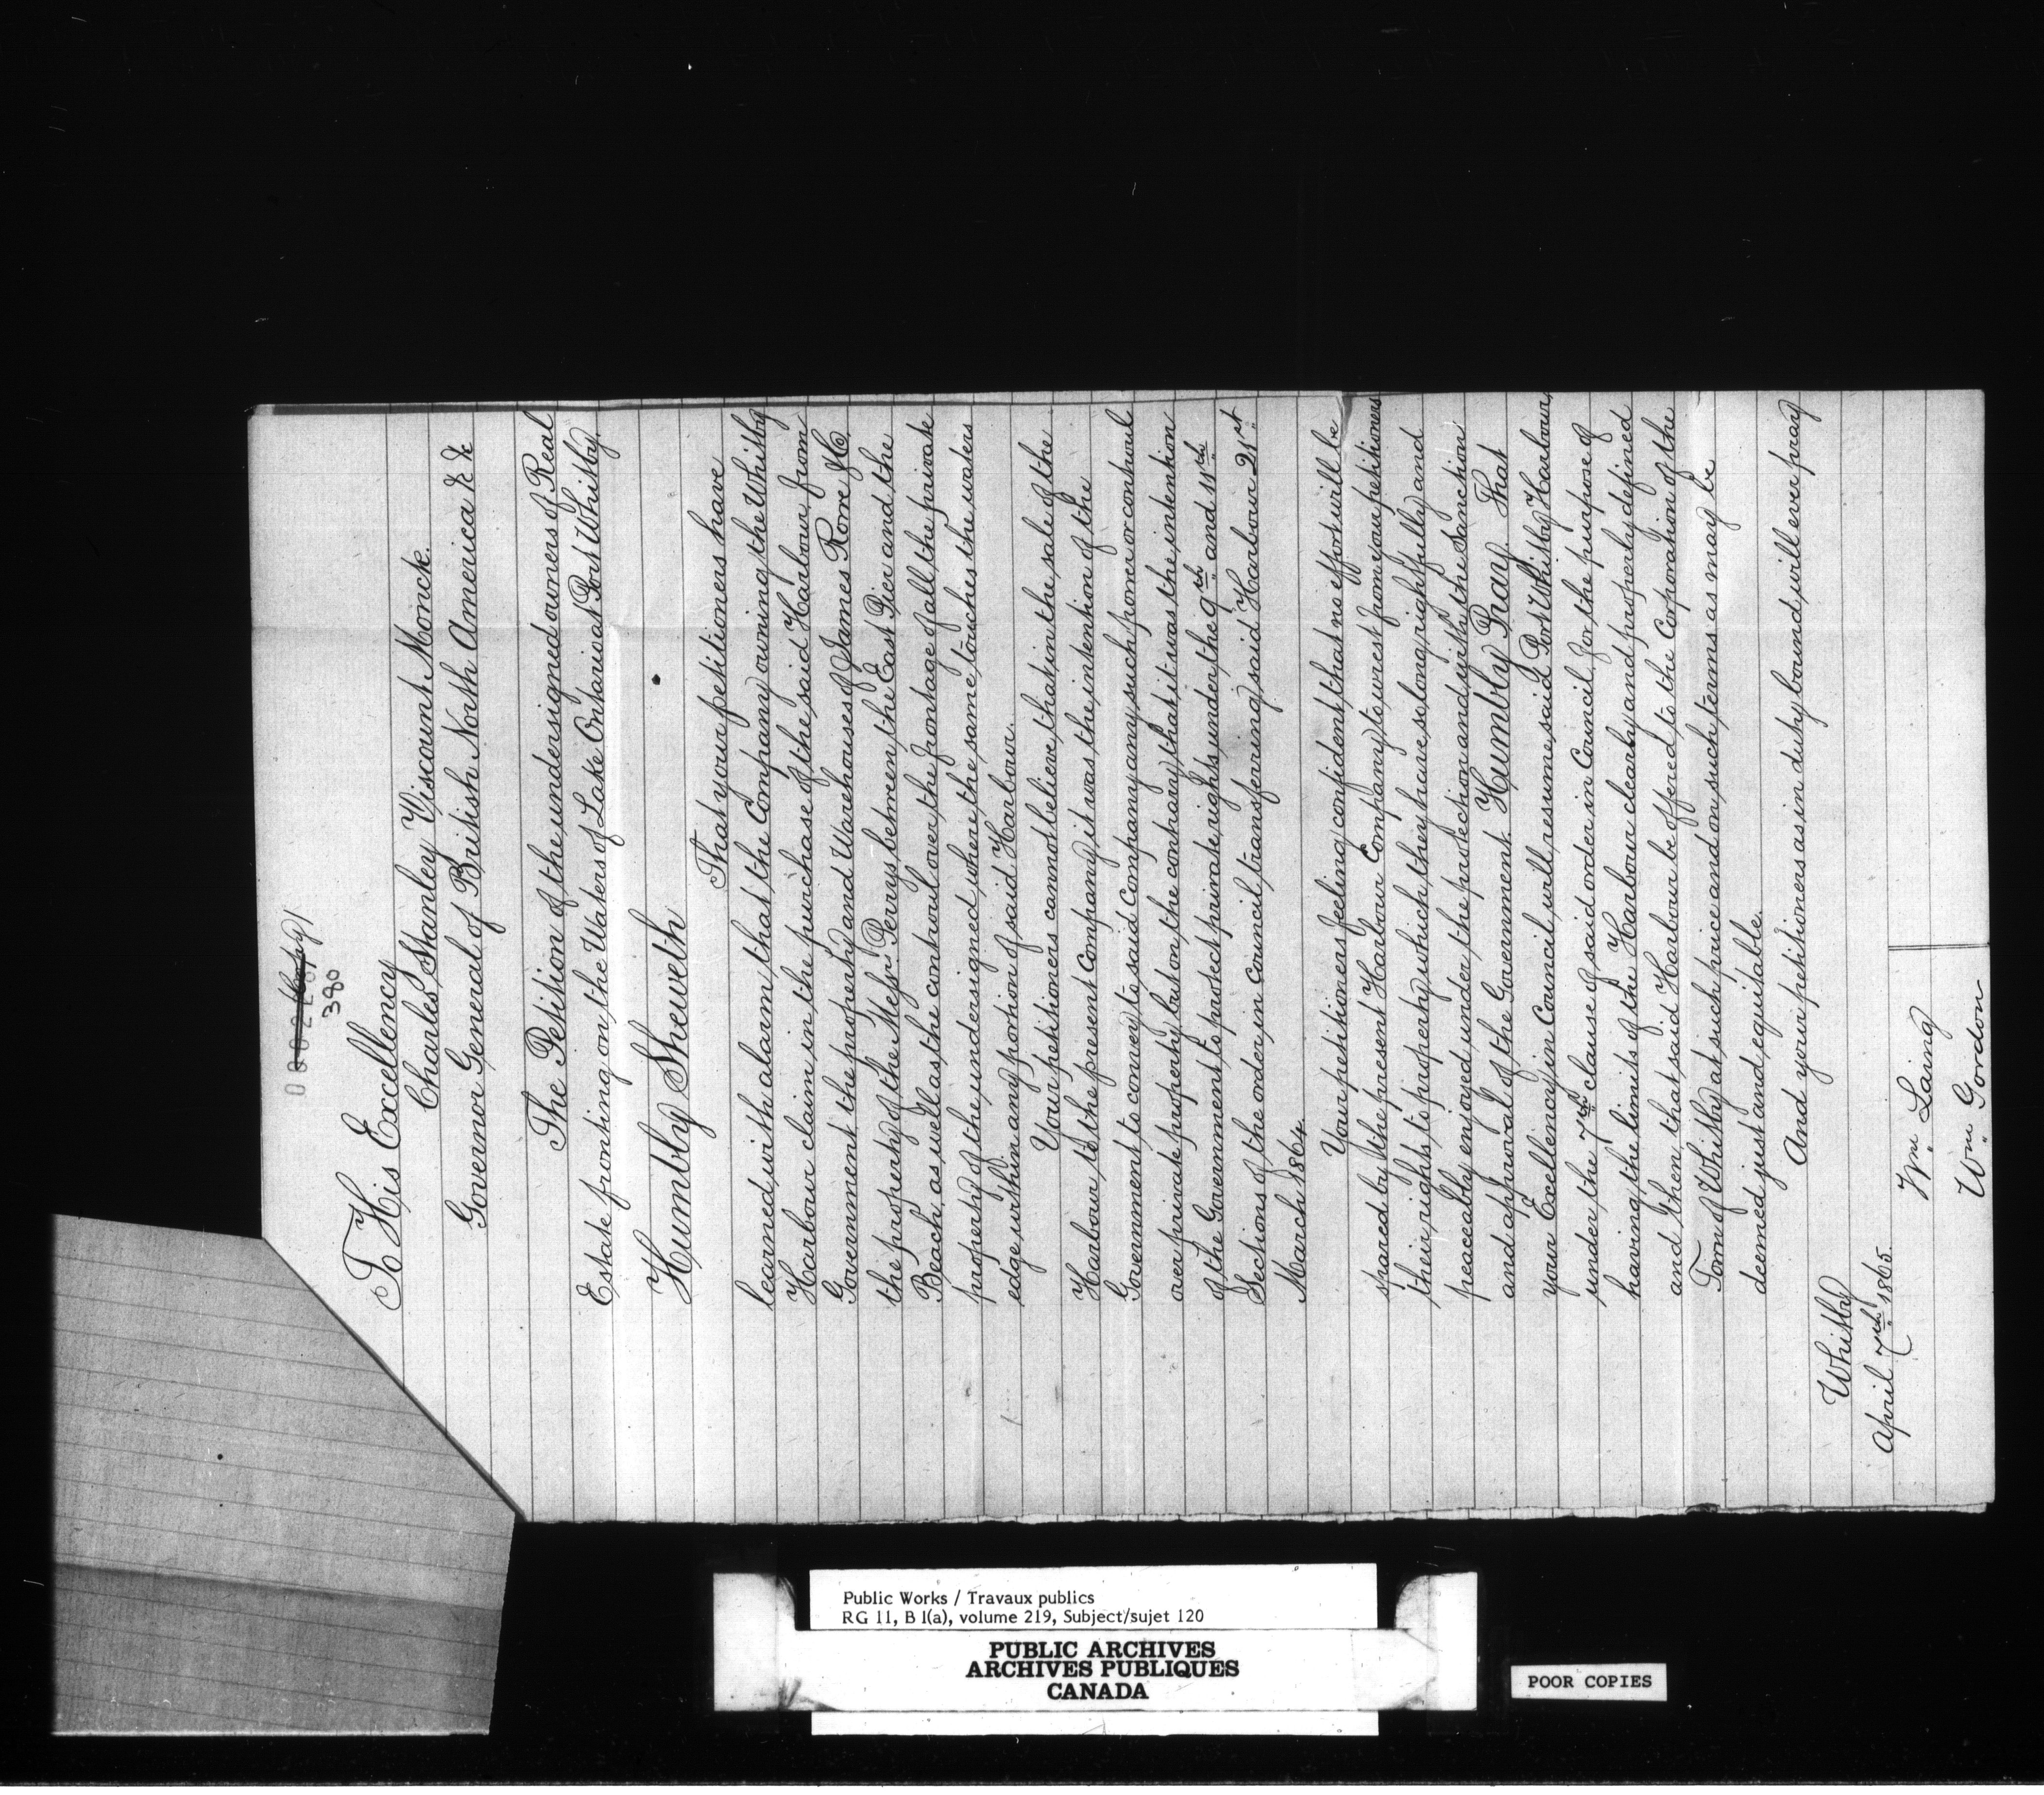 380
To His Excellency
Charles Stanley Viscount Monck.
Governor General of British North America &c &c
The Petition of the undersigned owners of Real
Estate fronting on the Waters of Lake Ontario at Port Whitby.
Humbly Sheweth
That your petitioners have
learned with alarm that the Company owning the Whitby
Harbour claim in the purchase of the said Harbour from
Government the property and Warehouses of James Rowe
the property of the Messrs Perrys between the East Pier and the
Beach, as well as the controul over the frontage of all the private
property of the undersigned where the same touches the waters
edge within any portion of said Harbour.
Your petitioners cannot believe that in the sale of the
Harbour to the present Company it was the intention of the
Government to convey to said Company any such power or controul
over private property but on the contrary that it was the intention
of the Government to protect private rights under the 9th and 11th
Sections of the order in Council transferring said Harbour 21st
March 1864.
Your petitioners feeling confident that no effort will be
spared by the present Harbour Company to wrest from your petitioners
their rights to property which they have so long rightfully and
peaceably enjoyed under the protection and with the Sanction
and approval of the Government. Humbly Pray. That
your Excellency in Council will resume said Port Whitby Harbour,
under the 7th clause of said order in Council, for the purpose of
having the limits of the Harbour clearly and properly defined
and then that said Harbour be offered to the Corporation of the
Town of Whitby at such price and on such terms as may be
deemed just and equitable.
And your petitioners as in duty bound will ever pray
Whitby
April 7th 1865.
Wm. Laing
Wm. Gordon
Public Works / Travaux publics
RG 11, B 1(a), volume 219, Subject/sujet 120
PUBLIC ARCHIVES
ARCHIVES PUBLIQUES
CANADA
POOR COPIES